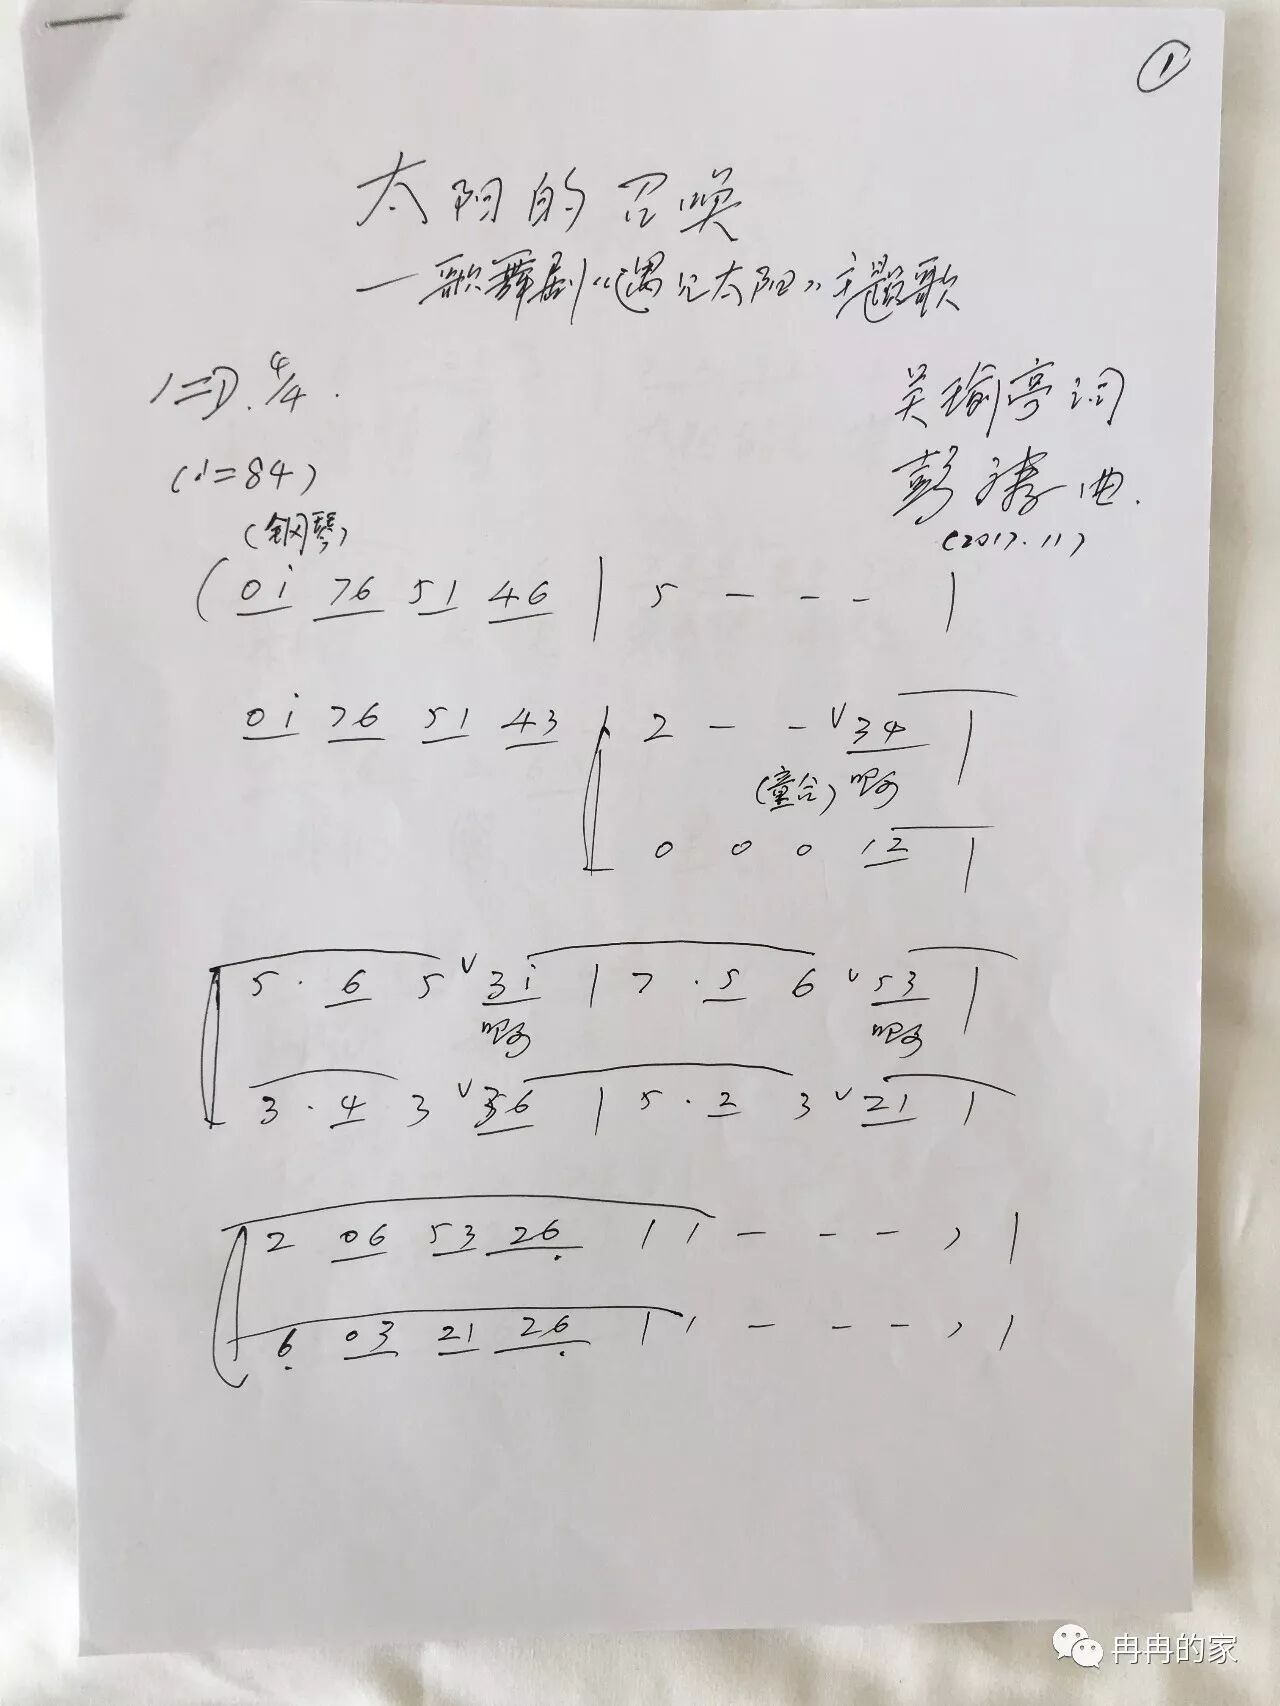 ①
太阳的召唤
—歌舞剧《遇见太阳》主题歌
1=D. 4/4.
吴瑜亭词
(♩=84)
彭 曲.
(钢琴)
(2017.11)
( 0i 76 51 46 | 5 - - - |
0i 76 51 43 | 2 - - ∨ 34 |
(童合) 呵
0 0 0 12 |
5 . 6 5 ∨ 3i | 7 . 5 6 ∨ 53 |
呵 呵
3 . 4 3 ∨ 6 | 5 . 2 3 ∨ 21 |
2 06 53 26̣ | 1 - - - ) |
6̣ 03 21 26̣ | 1 - - - ) |
冉冉的家